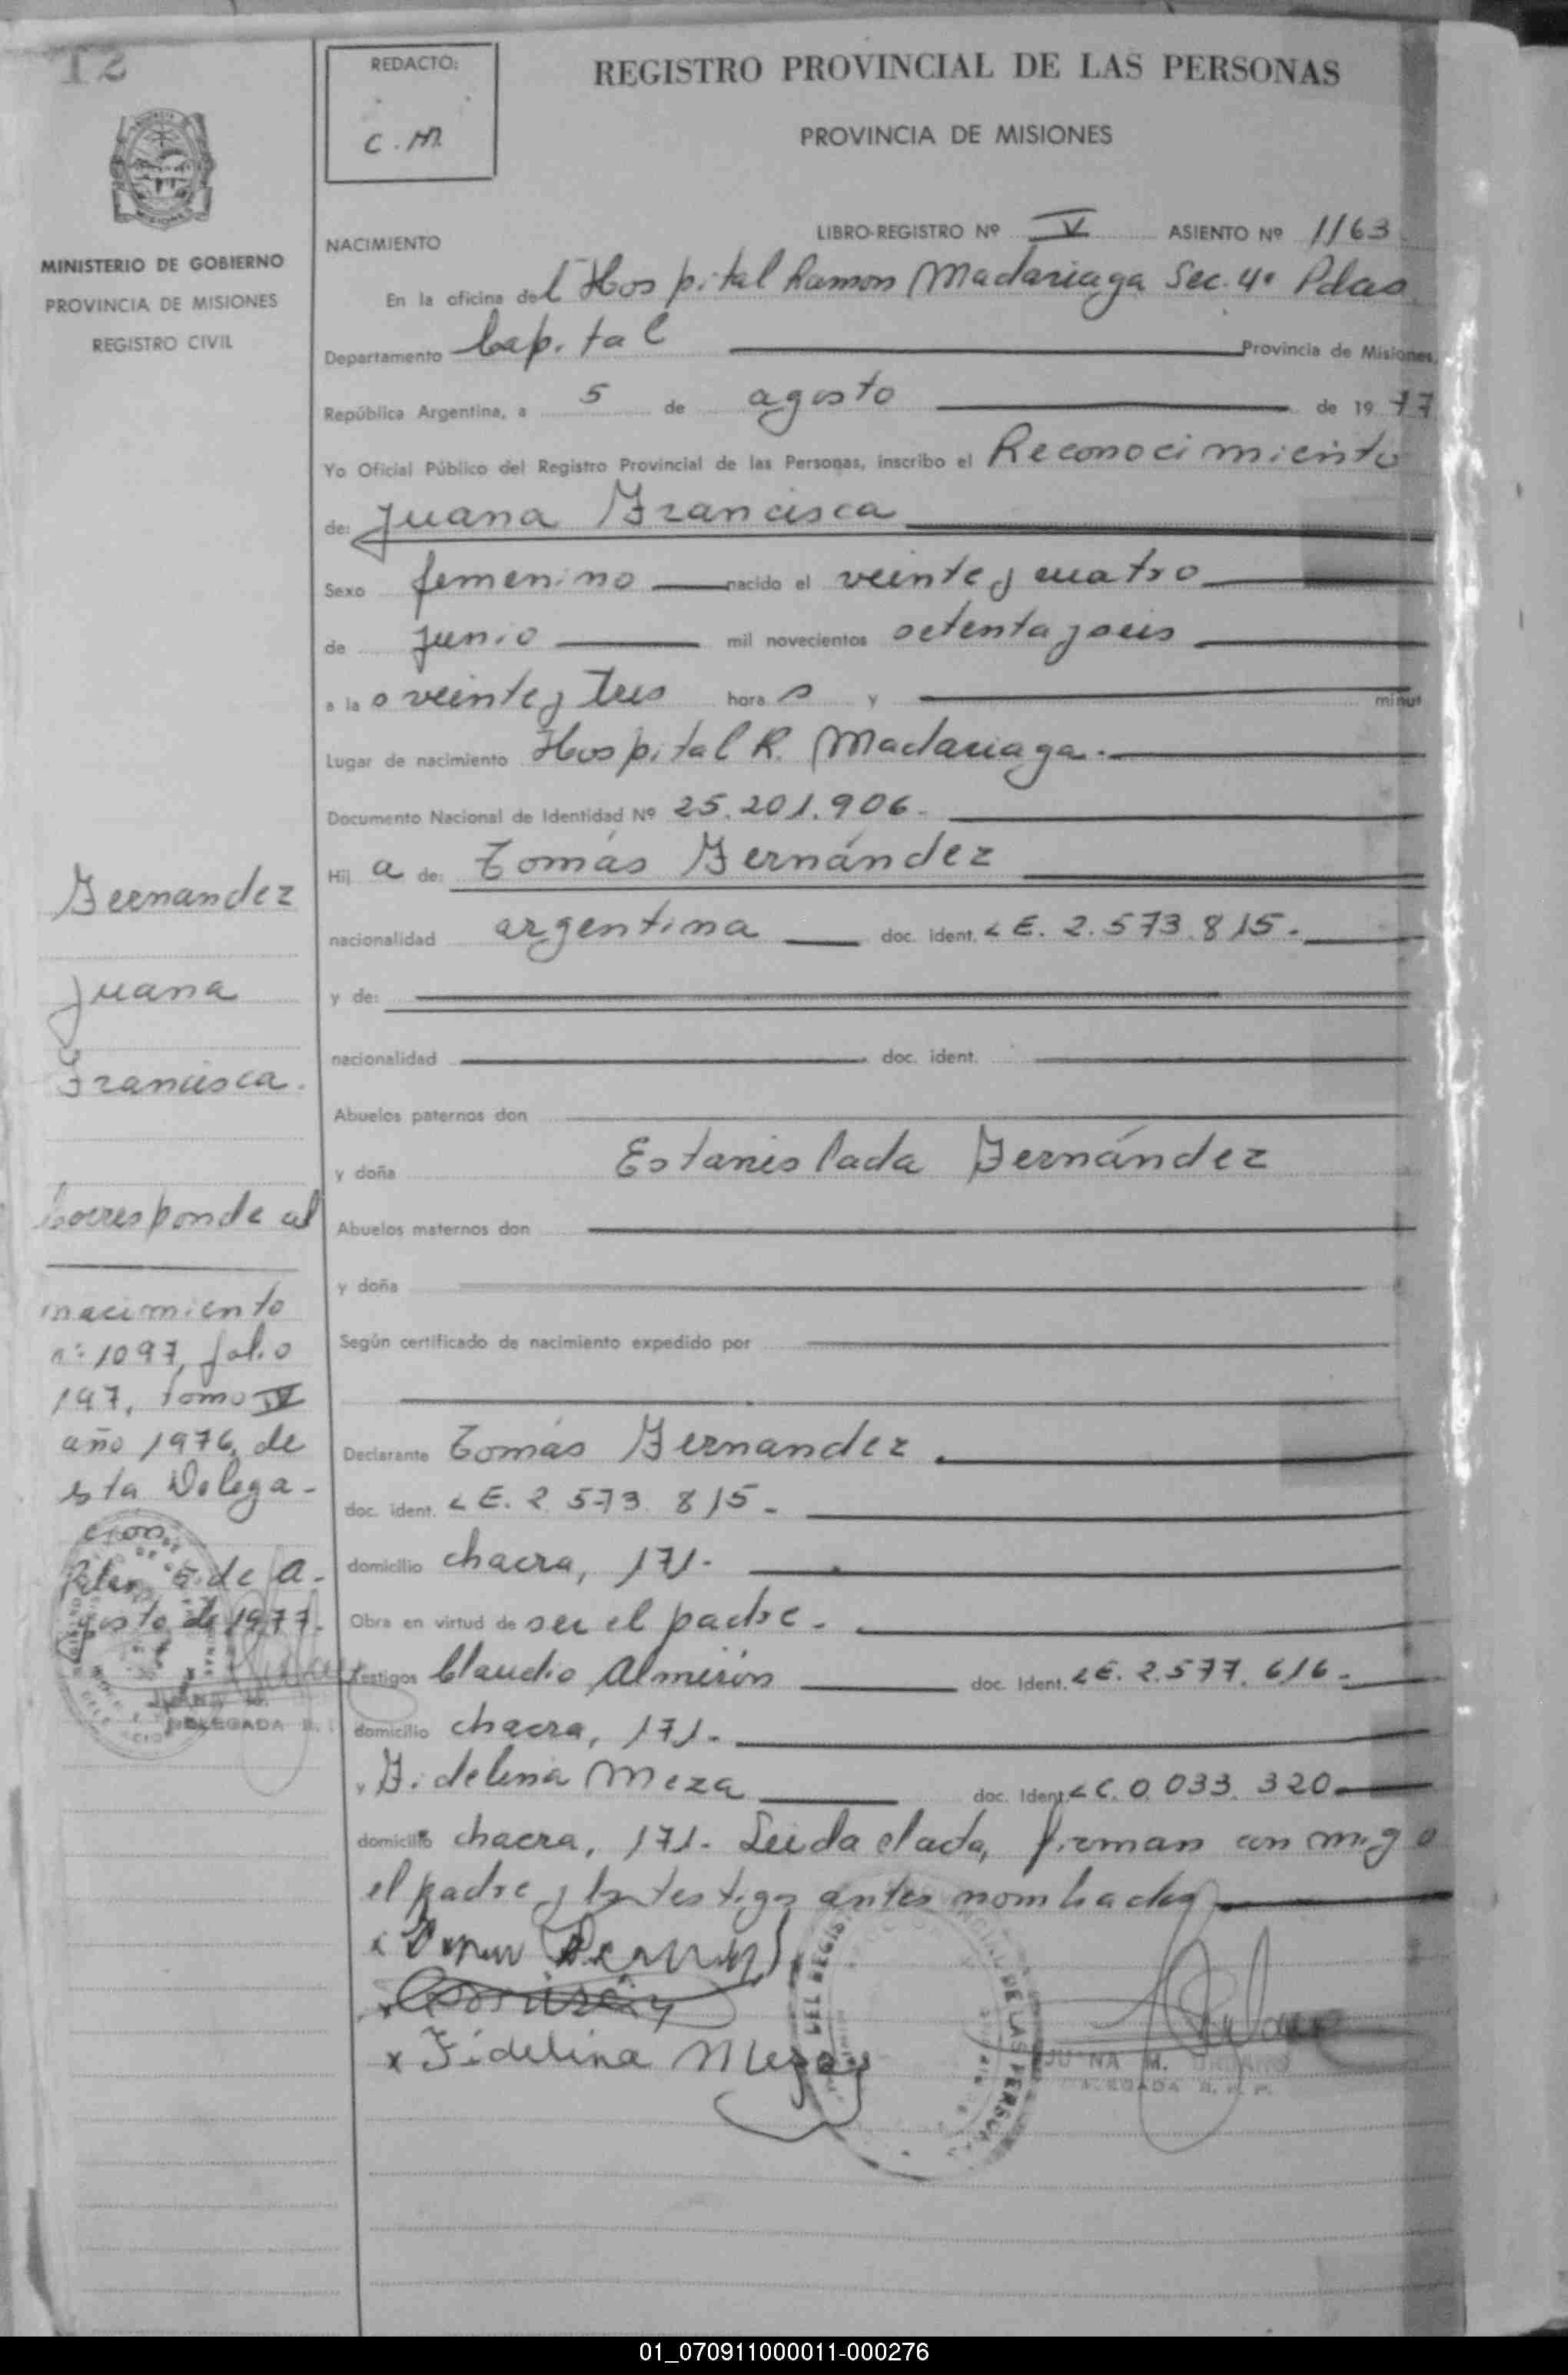 REDACTO:
C.M.
REGISTRO PROVINCIAL DE LAS PERSONAS
PROVINCIA DE MISIONES
MINISTERIO DE GOBIERNO
PROVINCIA DE MISIONES
REGISTRO CIVIL
NACIMIENTO
LIBRO-REGISTRO Nº V ASIENTO Nº 1163
En la oficina del Hospital Ramon Madariaga Sec. 4ª Pdas
Departamento Capital Provincia de Misiones,
República Argentina, a 5 de agosto de 1977
Yo Oficial Público del Registro Provincial de las Personas, inscribo el Reconocimiento
de: Juana Francisca
Sexo femenino nacido el veinte y cuatro
de junio mil novecientos setenta y seis
a la s veinte y tres hora s y minut
Lugar de nacimiento Hospital R. Madariaga.
Documento Nacional de Identidad Nº 25.201.906.
Hij a de: Tomás Fernández
nacionalidad argentina doc. ident. L E. 2.573.815.
y de:
nacionalidad doc. ident.
Abuelos paternos don
y doña Estanislada Fernández
Abuelos maternos don
y doña
Según certificado de nacimiento expedido por
Declarante Tomás Fernandez
doc. ident. L E. 2.573.815.
domicilio chacra, 171.
Obra en virtud de ser el padre.
Testigos Claudio Almirón doc. Ident. L E. 2.577.616.
domicilio chacra, 171.
y Fidelina Meza doc. Ident L C. 0.033.320
domicilio chacra, 171. Leida el acta, firman con migo
el padre y los testigos antes nombrados
x Fidelina Meza
JUANA M. URBANO
DELEGADA R. P. P.
DEL REGIS
DE LAS PERSONAS
Fernandez
Juana
Francisca.
Corresponde al
nacimiento
nº 1097, folio
197, tomo IV
año 1976, de
esta Delega-
ción.
Pdas, 5 de A-
gosto de 1977.
JUANA M.
DELEGADA R.
01_070911000011-000276